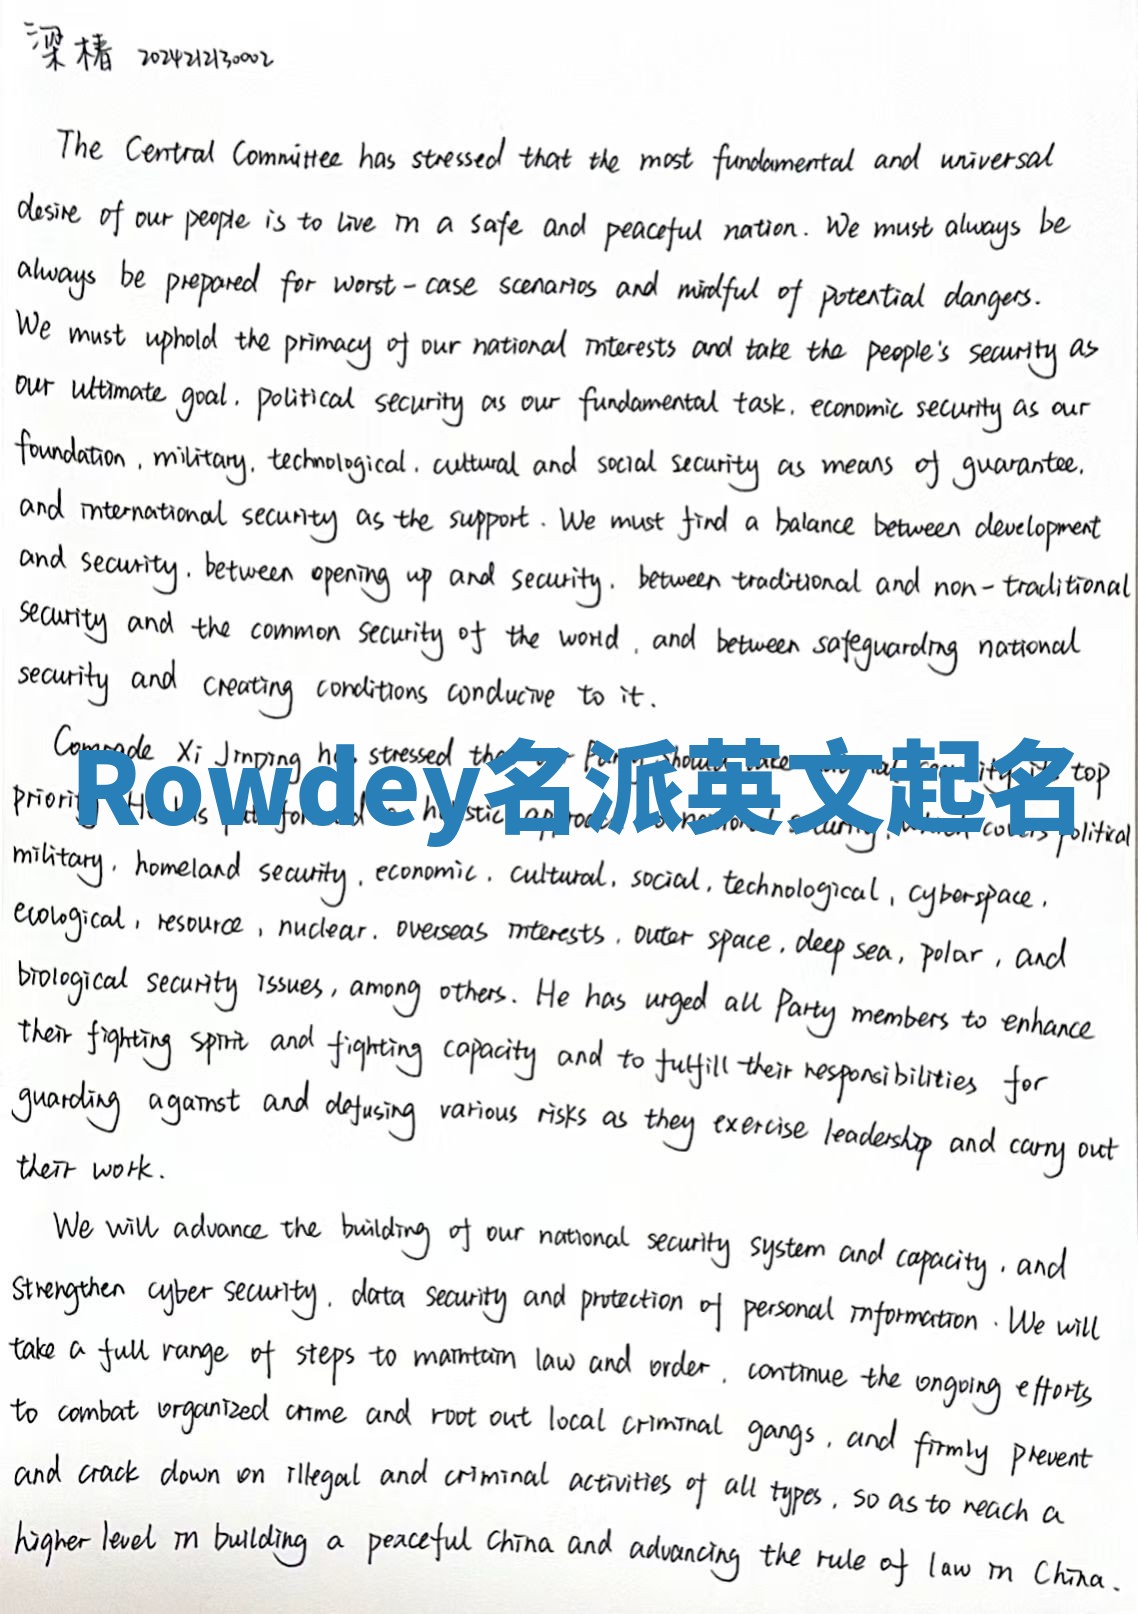 梁椿 2024212130002
The Central Committee has stressed that the most fundamental and universal
desire of our people is to live in a safe and peaceful nation. We must always be
always be prepared for worst-case scenarios and mindful of potential dangers.
We must uphold the primacy of our national interests and take the people's security as
our ultimate goal, political security as our fundamental task, economic security as our
foundation, military, technological, cultural and social security as means of guarantee,
and international security as the support. We must find a balance between development
and security, between opening up and security, between traditional and non-traditional
security and the common security of the world, and between safeguarding national
security and creating conditions conducive to it.
Comrade Xi Jinping has stressed top
Rowdey名派英文起名
priority. He has holistic national security, which covers political
military, homeland security, economic, cultural, social, technological, cyberspace,
ecological, resource, nuclear, overseas interests, outer space, deep sea, polar, and
biological security issues, among others. He has urged all Party members to enhance
their fighting spirit and fighting capacity and to fulfill their responsibilities for
guarding against and defusing various risks as they exercise leadership and carry out
their work.
We will advance the building of our national security system and capacity, and
strengthen cyber security, data security and protection of personal information. We will
take a full range of steps to maintain law and order, continue the ongoing efforts
to combat organized crime and root out local criminal gangs, and firmly prevent
and crack down on illegal and criminal activities of all types, so as to reach a
higher level in building a peaceful China and advancing the rule of law in China.